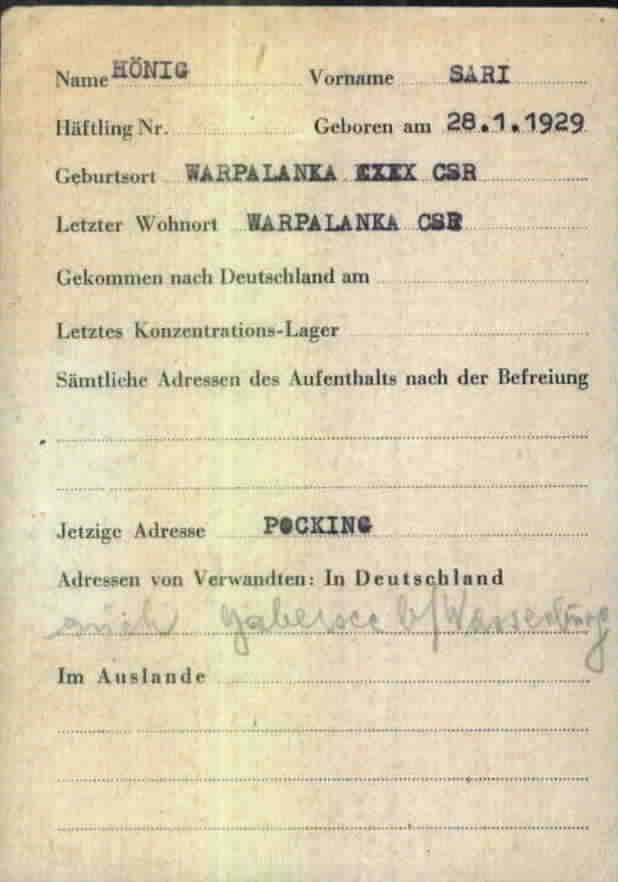 Name HÖNIG Vorname SARI
Häftling Nr. Geboren am 28.1.1929
Geburtsort WARPALANKA EXEX CSR
Letzter Wohnort WARPALANKA CSR
Gekommen nach Deutschland am
Letztes Konzentrations-Lager
Sämtliche Adressen des Aufenthalts nach der Befreiung
Jetzige Adresse POCKING
Adressen von Verwandten: In Deutschland
auch Gabersee b/Wasserburg
Im Auslande